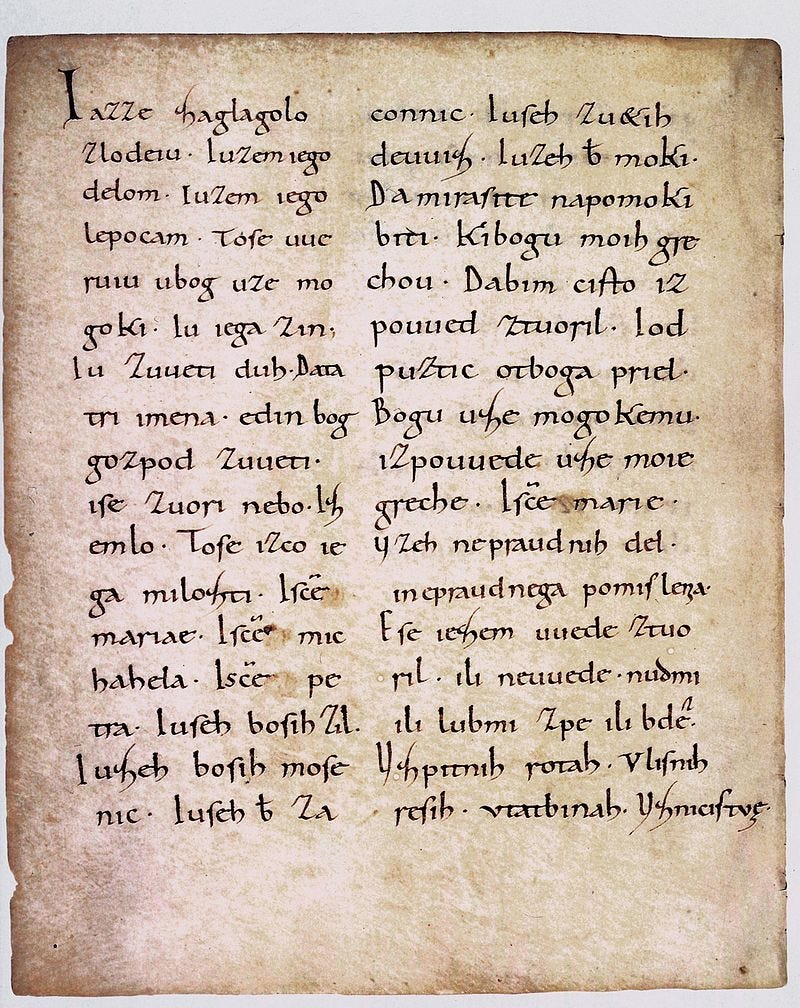 Iazze zhaglagolo
zlodeiu. Iuzem iego
delom. Iuzem iego
lepocam. Tose uue
ruiu ubog uze mo
goki. Iu iega zin;
Iu zuueti duh. Data
tri imena. edin bog
gozpod zuueti.
ise zuori nebo. Izh
emlo. Tose izco ie
ga milozhti. Isc̄e
mariae. Isc̄e mic
hahela. Isc̄e pe
tra. Iuseh bosih zil.
Iuzheh bosih mose
nic. Iuseh b̄ za
connic. Iuseh zu&ih
deuuizh. Iuzeh b̄ moki.
Da mirasite napomoki
biti. Kibogu moih gre
chou. Dabim cisto iz
pouued ztuoril. Iod
puztic otboga priel.
Bogu uzhe mogokemu.
izpouuede uzhe moie
greche. Isc̄e marie.
Uzeh nepraudnih del.
inepraudnega pomislenza.
Ese iezhem uuede ztuo
ril. ili neuuede. nudmi
ili lubmi zpe ili bdē.
Uzhpitnih rotah. Vlisnih
resih. vtatbinah. Uzhnicistvę.